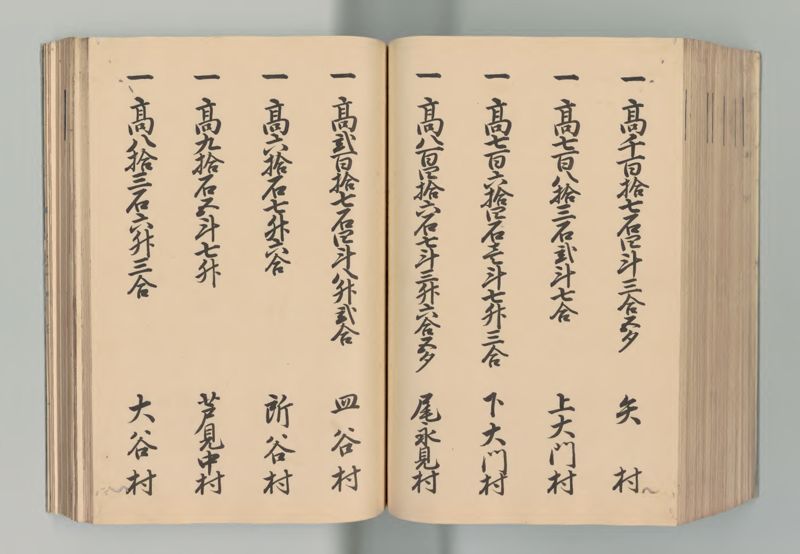 一 高千百拾七石四斗三合五夕 矢村
一 高七百八拾三石弐斗七合 上大門村
一 高七百六拾四石壱斗七升三合 下大門村
一 高八百四拾六石七斗三升六合五夕 尾永見村
一 高弐百拾七石四斗八升弐合 皿谷村
一 高六拾石七升六合 所谷村
一 高九拾石五斗七升 芦見中村
一 高八拾三石六升三合 大谷村